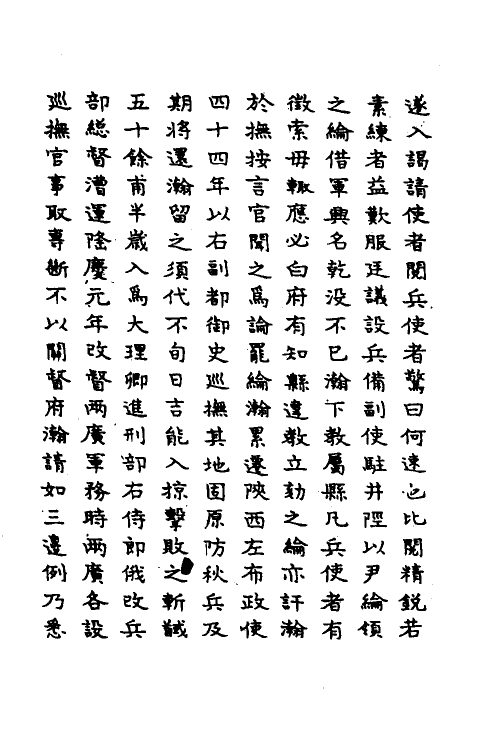 遂入謁請使者閱兵使者驚曰何速也比閱精銳若
素練者益歎服廷議設兵備副使駐井陘以尹綸領
之綸借軍興名乾没不已瀚下教屬縣凡兵使者有
徵索毋輙應必白府有知縣違教立劾之綸亦訐瀚
於撫按言官聞之爲論罷綸瀚累遷陝西左布政使
四十四年以右副都御史巡撫其地固原防秋兵及
期將還瀚留之須代不旬日吉能入掠擊敗之斬馘
五十餘甫半歲入爲大理卿進刑部右侍郎俄改兵
部總督漕運隆慶元年改督兩廣軍務時兩廣各設
巡撫官事取專斷不以關督府瀚請如三邊例乃悉